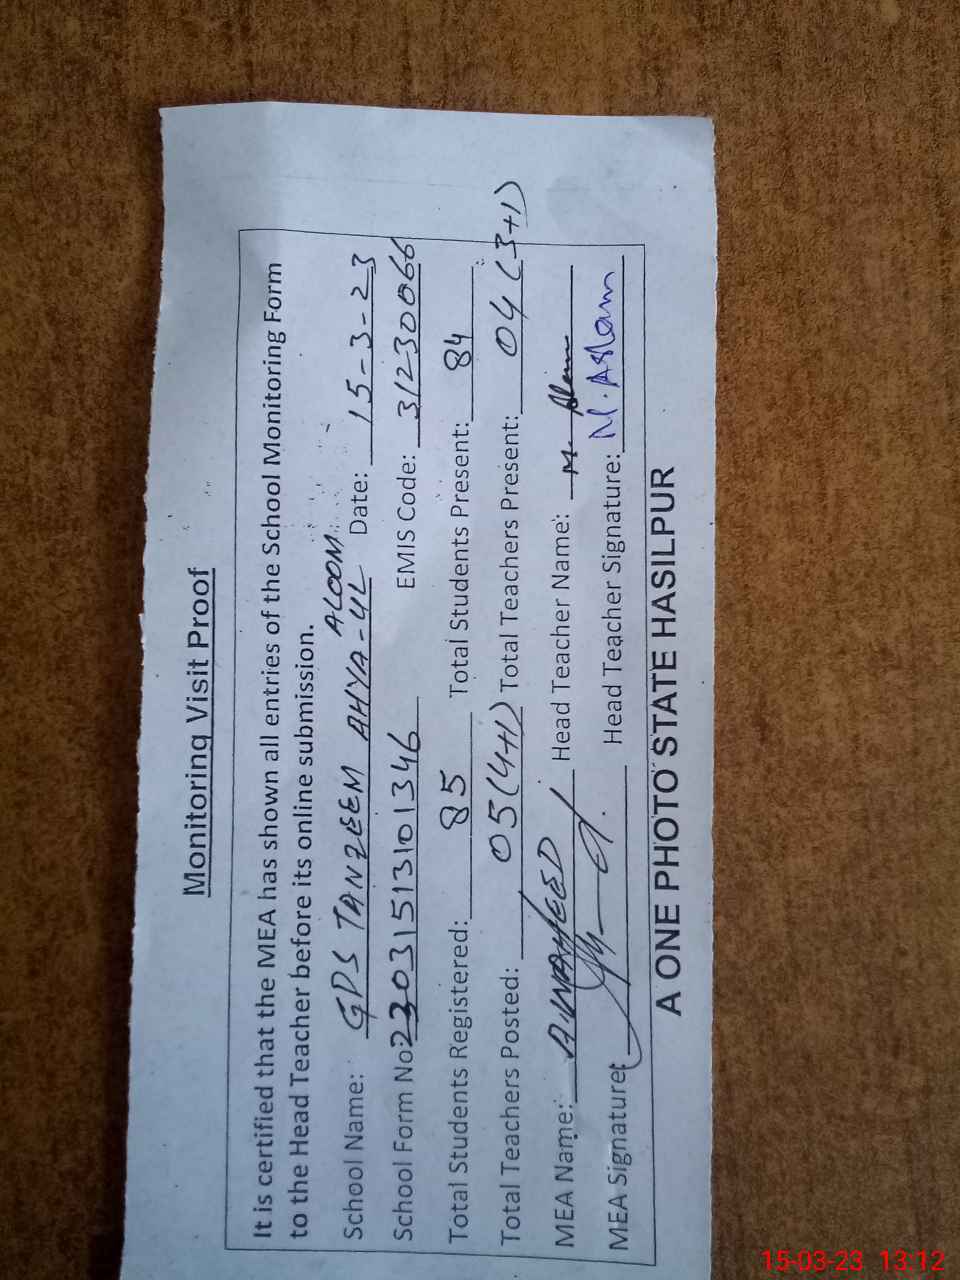 Monitoring Visit Proof
It is certified that the MEA has shown all entries of the School Monitoring Form
to the Head Teacher before its online submission.
School Name: GPS TANZEEM AHYA-UL ALOOM Date: 15-3-23
School Form No 2303151310 1346 EMIS Code: 31230066
Total Students Registered: 85 Total Students Present: 84
Total Teachers Posted: 05 (4+1) Total Teachers Present: 04 (3+1)
MEA Name: A.WAHEED Head Teacher Name: M. Aslam
MEA Signature: Head Teacher Signature: M. Aslam
A ONE PHOTO STATE HASILPUR
15-03-23 13:12